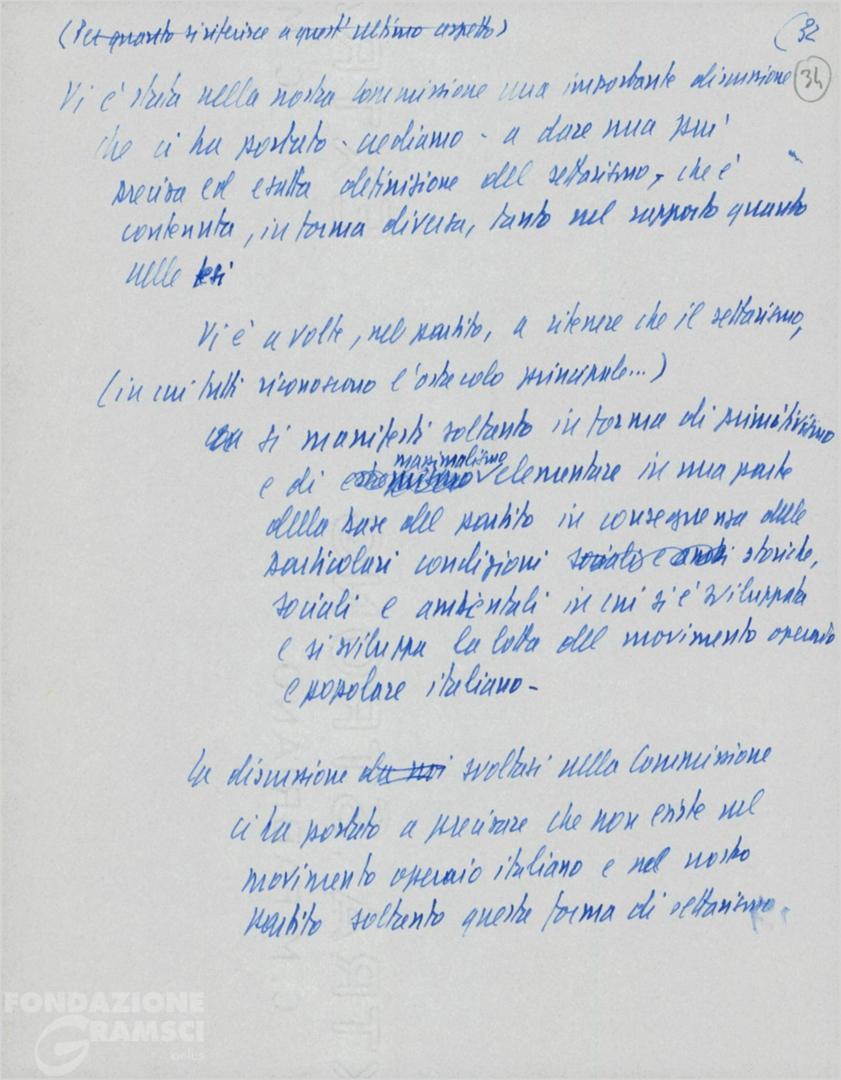 (Per quanto si riferisce a quest'ultimo aspetto)
(32
34
Vi è stata nella nostra Commissione una importante discussione
che ci ha portato - crediamo - a dare una più
precisa ed esatta definizione del settarismo, che è
contenuta, in forma diversa, tanto nel rapporto quanto
nelle tesi
Vi è a volte, nel partito, a ritenere che il settarismo,
(in cui tutti riconoscono l'ostacolo principale...)
si manifesti soltanto in forma di primitivismo
massimalismo
e di estremismo elementare in una parte
della base del partito in conseguenza delle
particolari condizioni sociali e storiche,
sociali e ambientali in cui si è sviluppata
e si sviluppa la lotta del movimento operaio
e popolare italiano -
La discussione da noi svoltasi nella Commissione
ci ha portato a precisare che non esiste nel
movimento operaio italiano e nel nostro
partito soltanto questa forma di settarismo.
FONDAZIONE
GRAMSCI
onlus